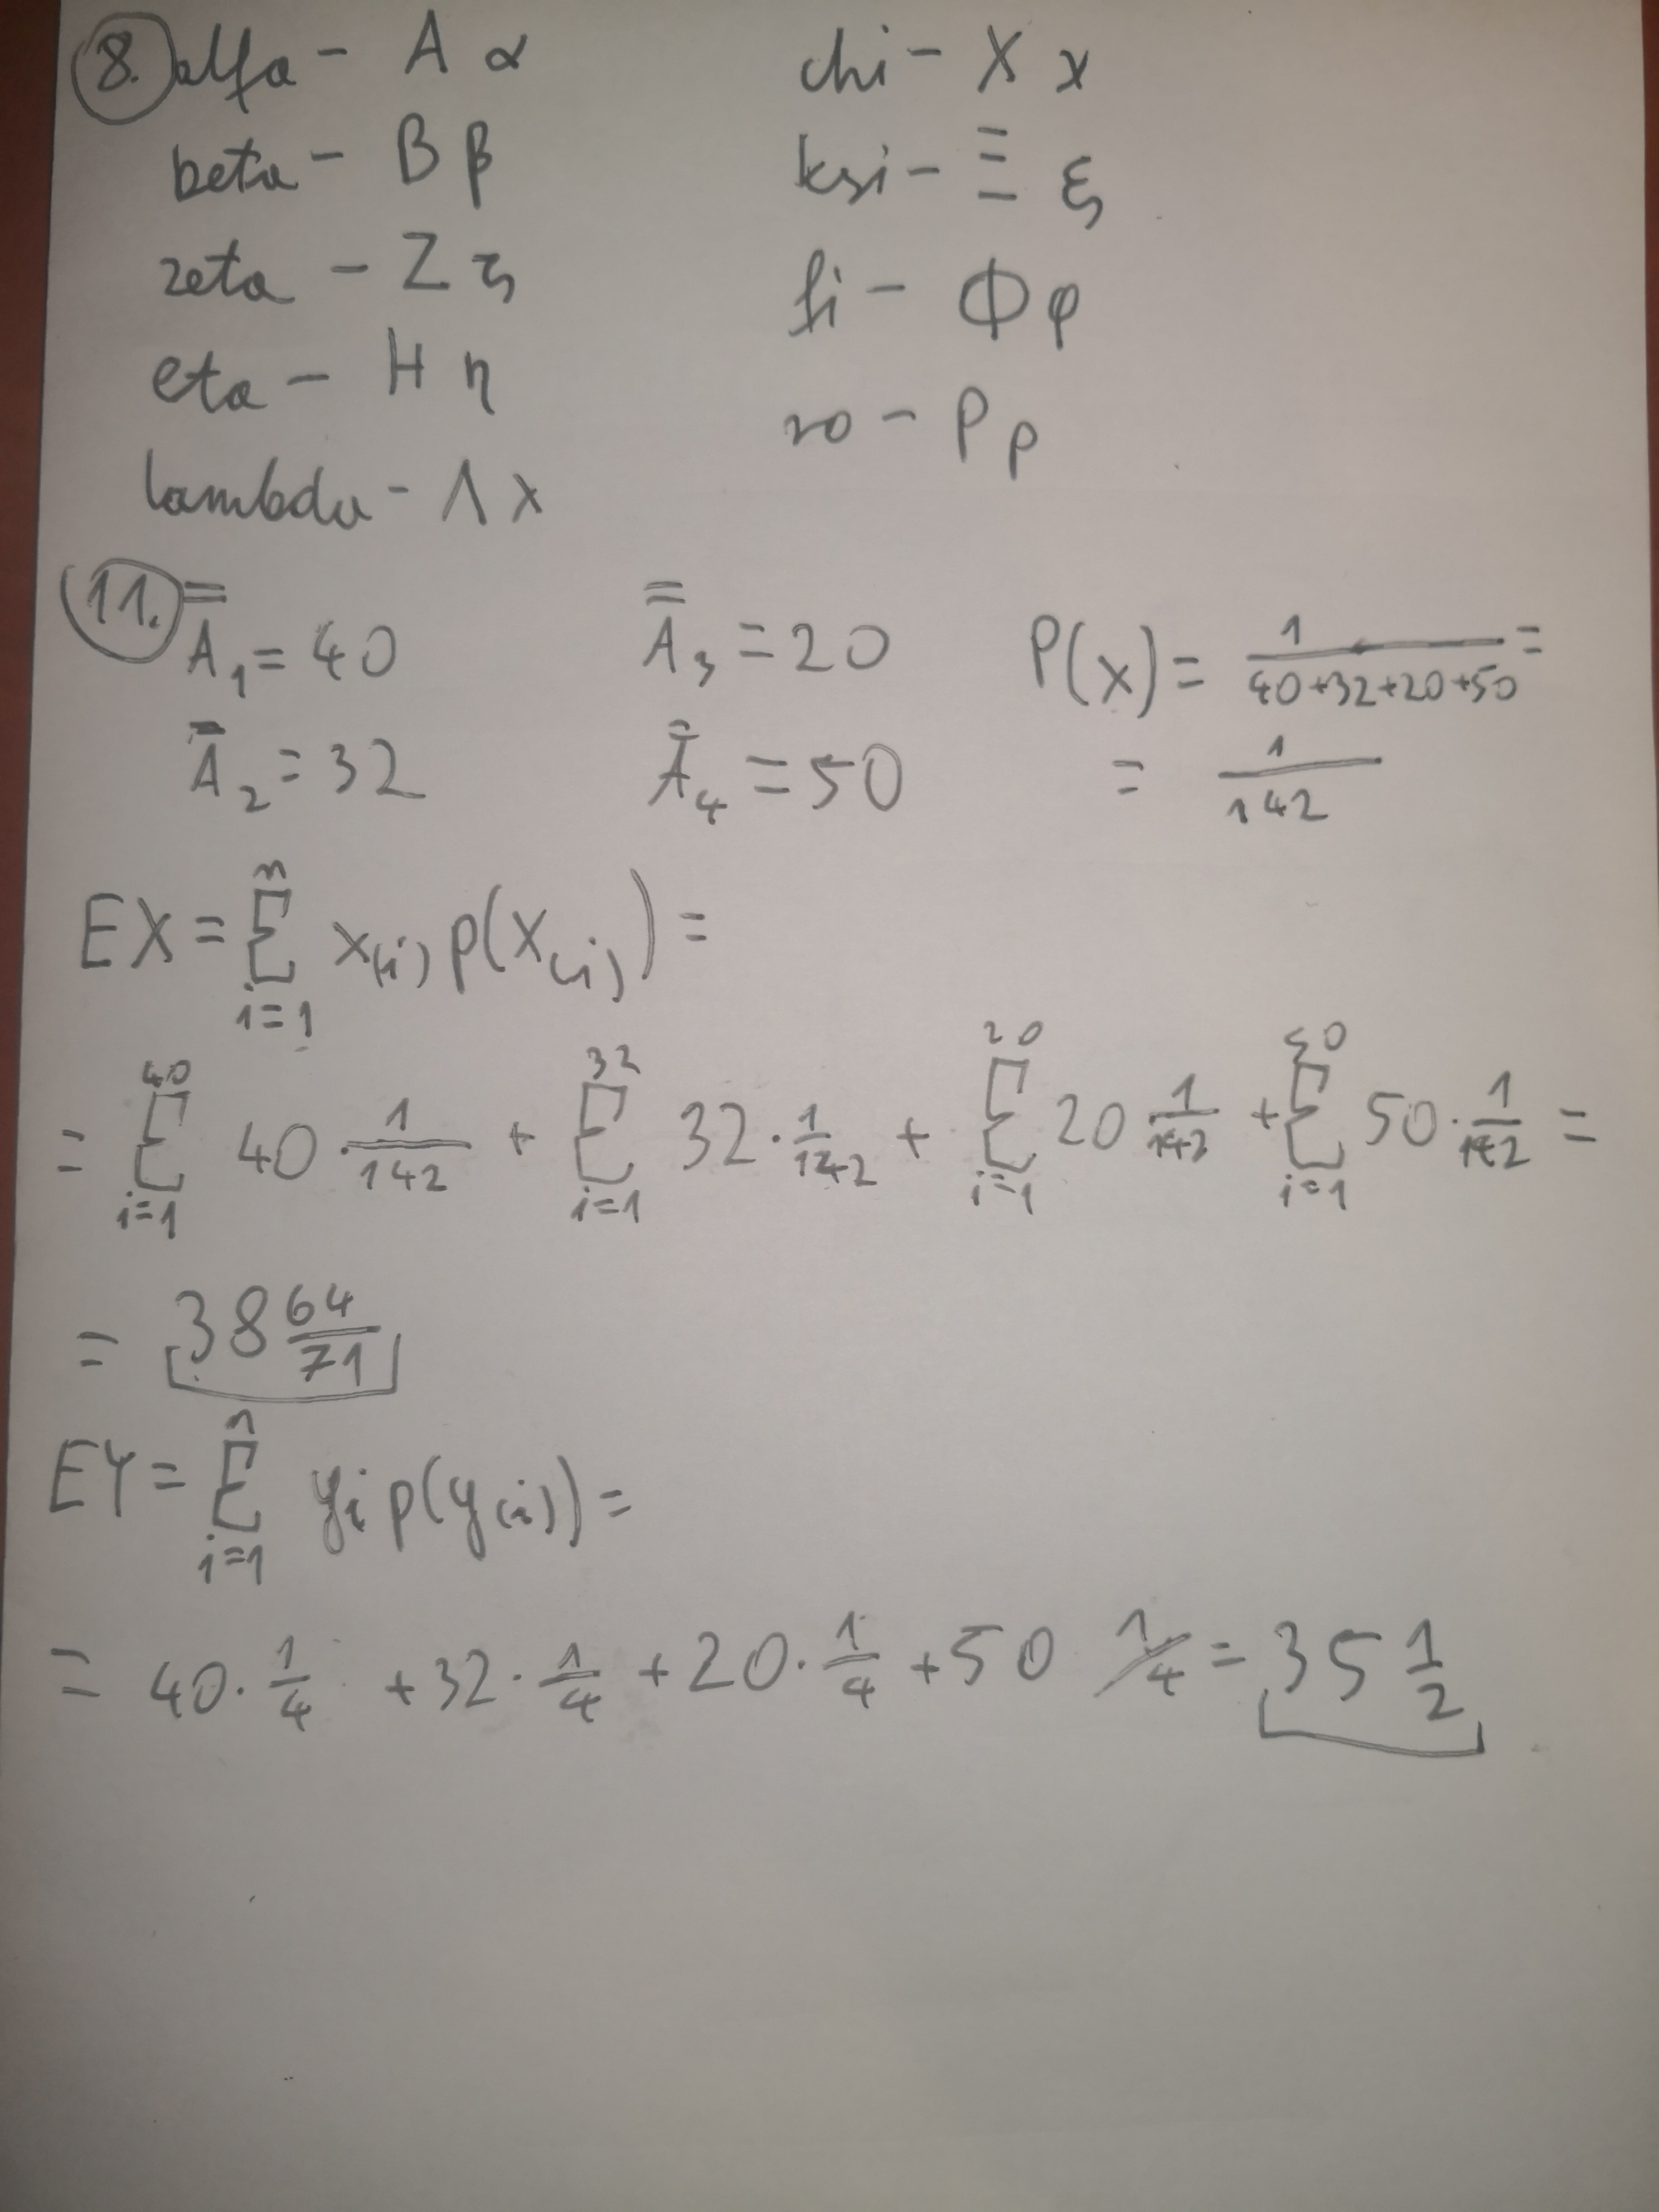 8. alfa - A α
beta - B β
zeta - Z ζ
eta - H η
lambda - Λ λ
chi - X χ
ksi - Ξ ξ
fi - Φ φ
ro - P ρ
11. A̿₁ = 40
A̿₂ = 32
A̿₃ = 20
A̿₄ = 50
P(x) = 1/(40+32+20+50) =
= 1/142
EX = Σ_{i=1}^{n} x_(i) p(x_(i)) =
= Σ_{i=1}^{40} 40 · 1/142 + Σ_{i=1}^{32} 32 · 1/142 + Σ_{i=1}^{20} 20 1/142 + Σ_{i=1}^{50} 50 · 1/142 =
= 38 64/71
EY = Σ_{i=1}^{n} y_i p(y_(i)) =
= 40 · 1/4 + 32 · 1/4 + 20 · 1/4 + 50 1/4 = 35 1/2